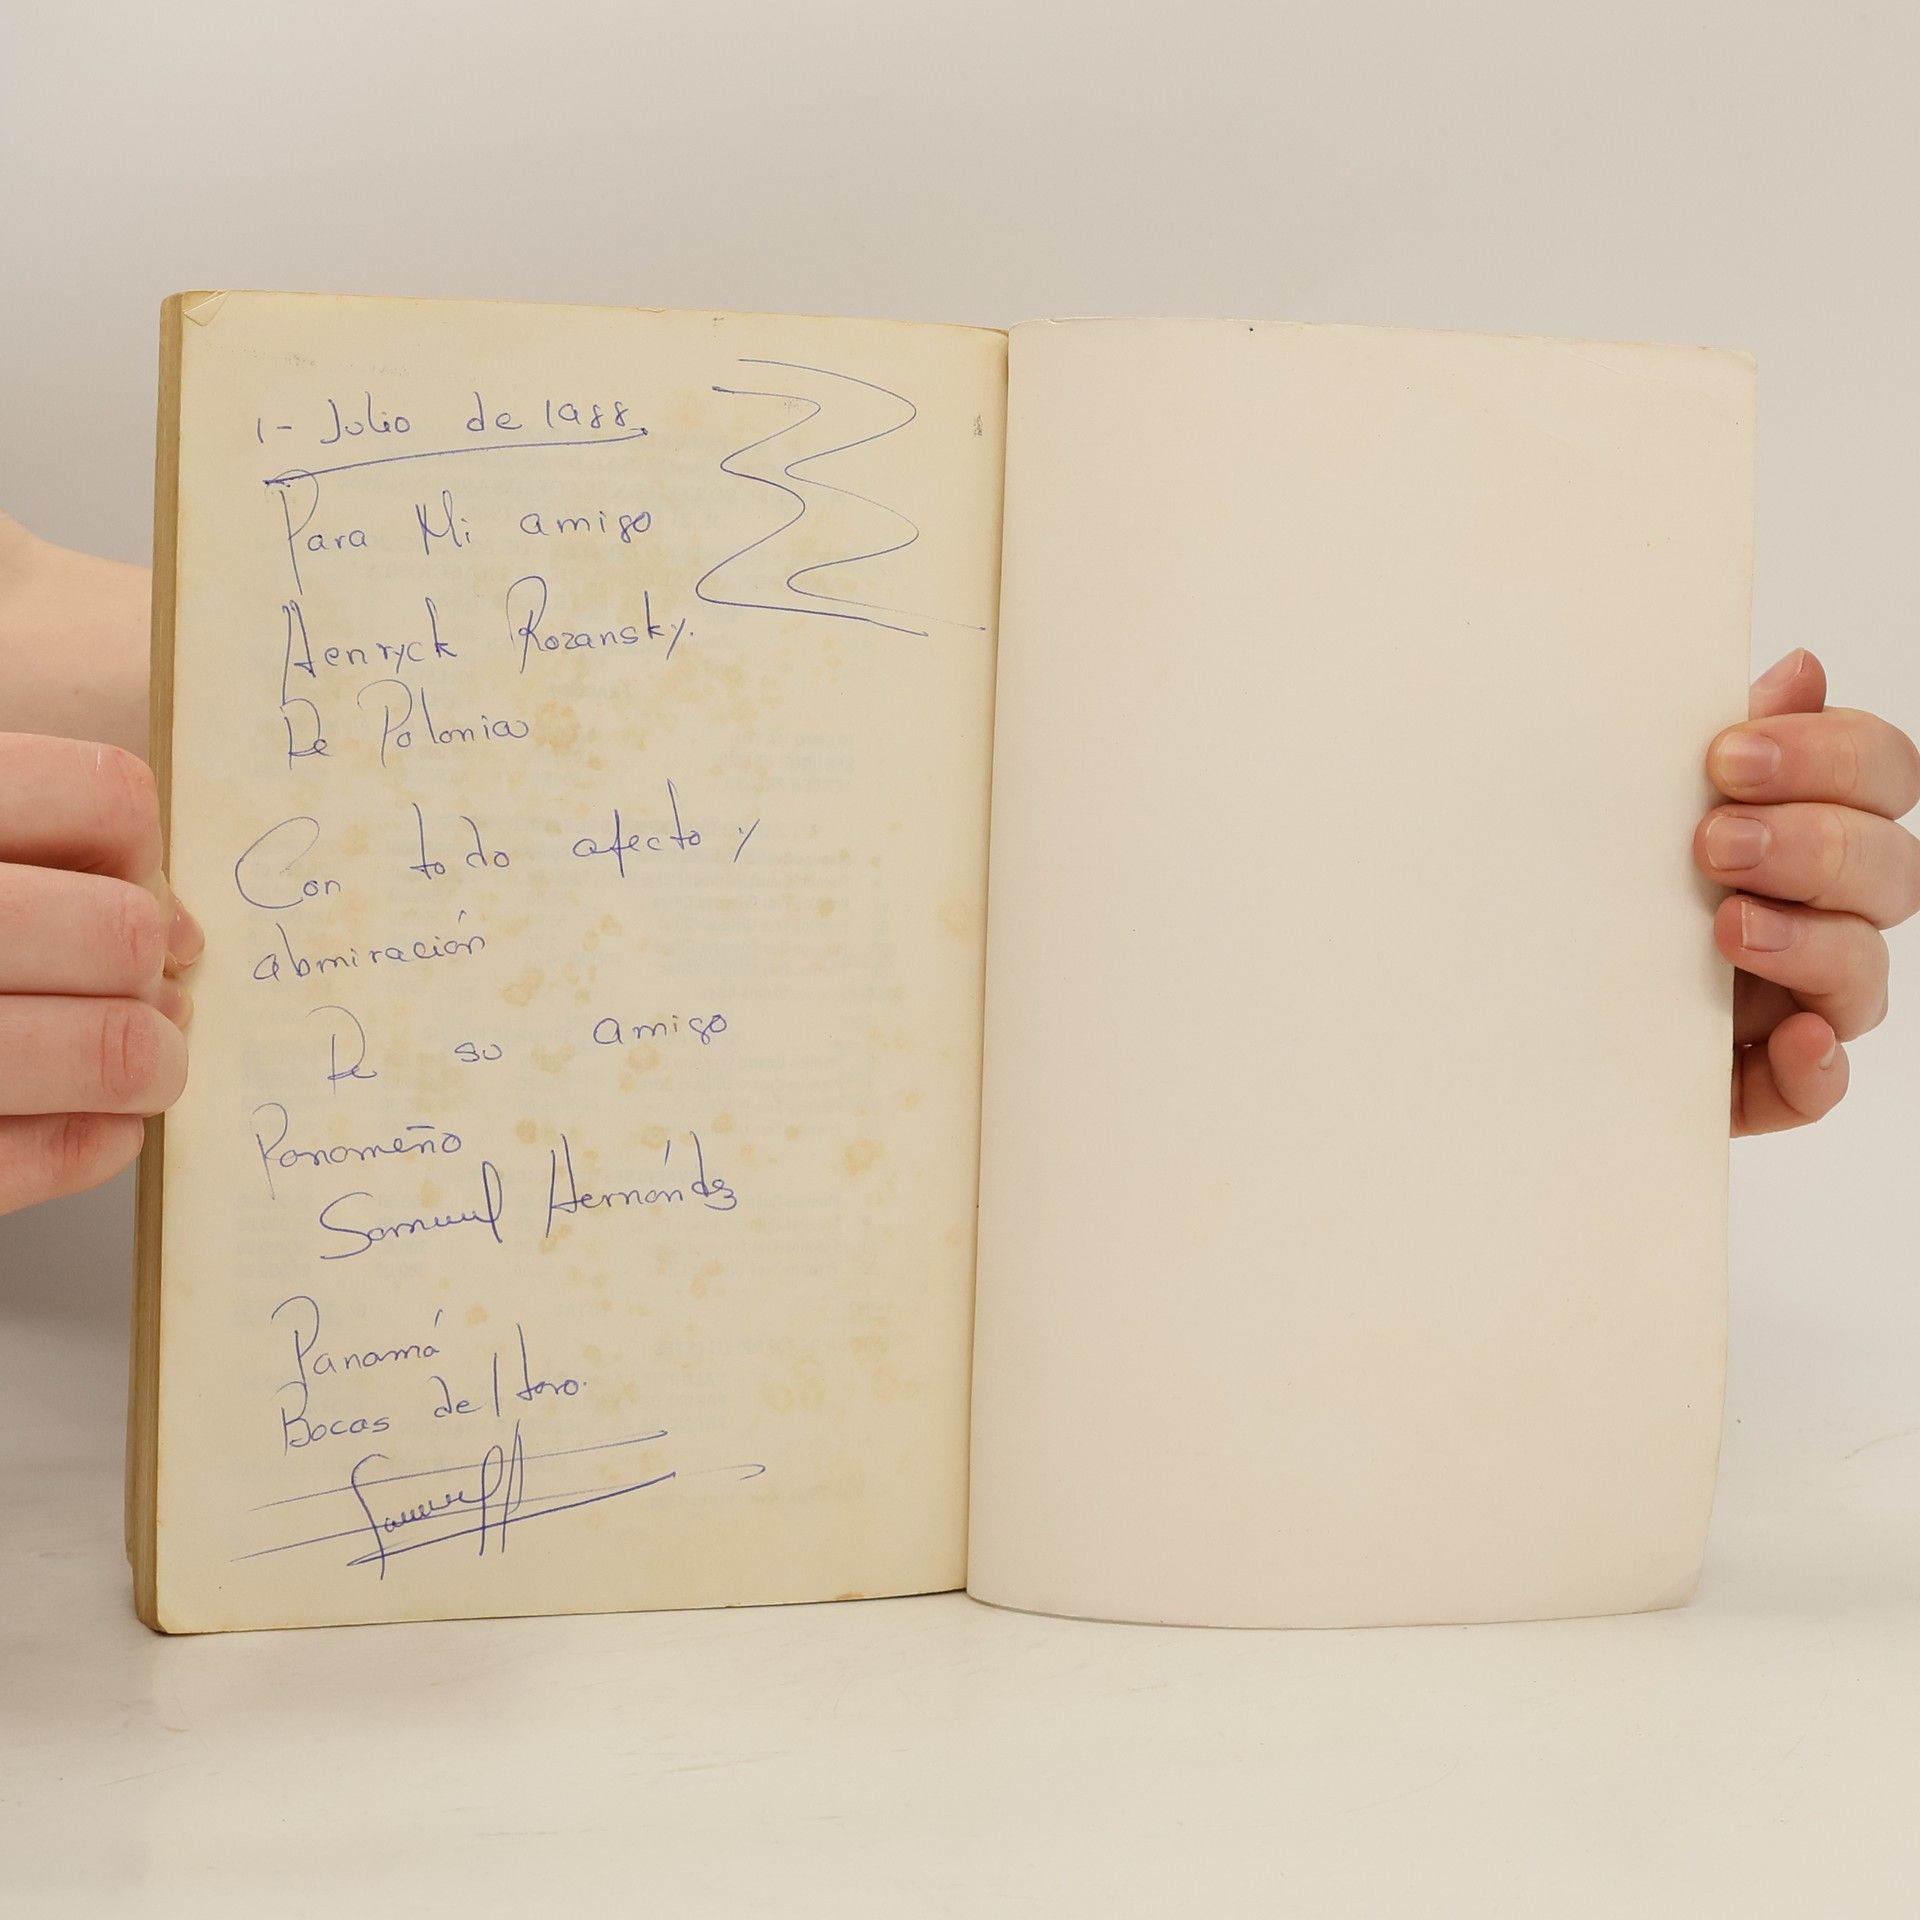 1- Julio de 1988.
Para Mi amigo
Henryck Rozansky.
De Polonia
Con todo afecto y
abmiración
De su amigo
Panameño
Samuel Hernández
Panamá
Bocas del toro.
Samuel H